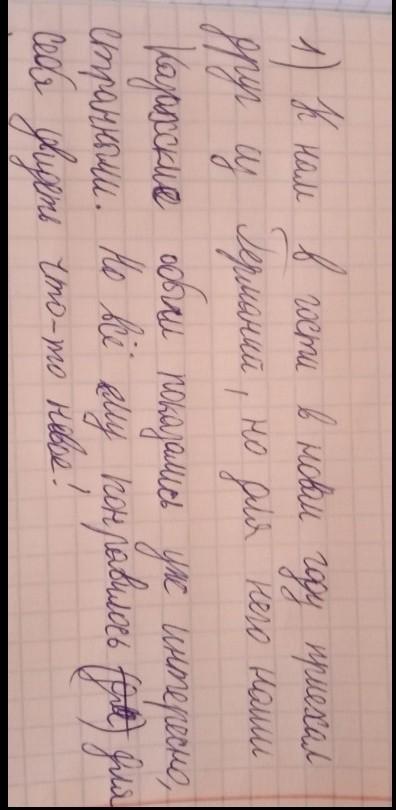 1) К нам в гости в новом году приехал
друг из Германий, но для него наши
Казахские обычаи показались уж интересно,
странными. Но всё ему понравилось для
себя увидеть что-то новое!